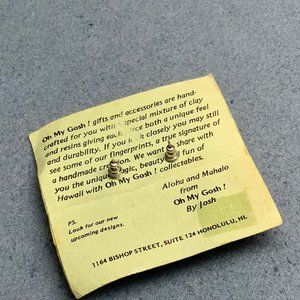 Oh My Gosh ! gifts and accessories are hand-
crafted for you with a special mixture of clay
and resins giving each piece both a unique feel
and durability. If you look closely you may still
see some of our fingerprints, a true signature of
a handmade creation. We want to share
you the unique, magic, beauty & fun of
Hawaii with Oh My Gosh ! collectables.
Aloha and Mahalo
from
Oh My Gosh !
By Josh
PS.
Look for our new
upcoming designs.
1164 BISHOP STREET, SUITE 124 HONOLULU, HI.